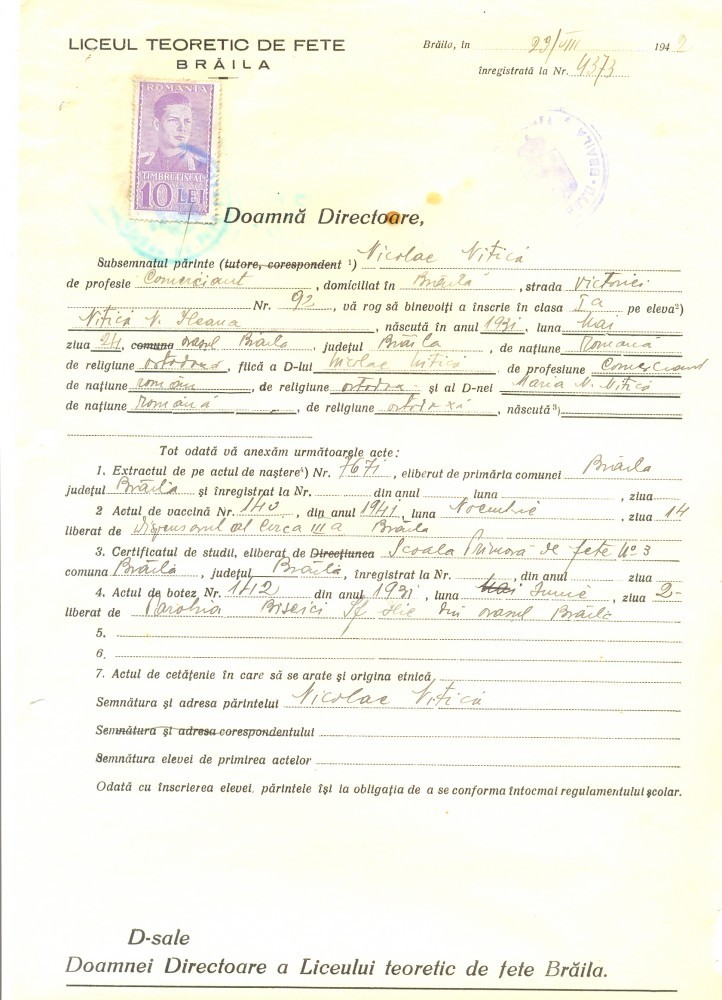 LICEUL TEORETIC DE FETE
BRĂILA
Brăila, în 29/VIII 1942
înregistrată la Nr. 4373
ROMANIA
TIMBRU FISCAL
10 LEI
Doamnă Directoare,
Subsemnatul părinte (tutore, corespondent ¹) Nicolae Nițică
de profesie Comerciant, domiciliat în Brăila, strada Victoriei
Nr. 92, vă rog să binevoiți a înscrie în clasa I a pe eleva²)
Nițică N. Ileana, născută în anul 1931, luna Mai
ziua 24, comuna orașul Brăila județul Brăila, de națiune Română
de religiune ortodoxă, fiică a D-lui Nicolae Nițică de profesiune Comerciant
de națiune român, de religiune ortodox și al D-nei Maria N. Nițică
de națiune Română, de religiune ortodoxă, născută³)
Tot odată vă anexăm următoarele acte:
1. Extractul de pe actul de naștere⁴) Nr. 767i, eliberat de primăria comunei Brăila
județul Brăila și înregistrat la Nr. din anul luna, ziua
2 Actul de vaccină Nr. 140, din anul 1941, luna Noembrie, ziua 14
liberat de Dispensarul al Circa III a Brăila
3. Certificatul de studii, eliberat de Direcțiunea Scoala Primară de fete No 3
comuna Brăila, județul Brăila, înregistrat la Nr., din anul ziua
4. Actul de botez Nr. 142 din anul 1931, luna Mai Iunie, ziua 2-
liberat de Parohia Biserici Sf Ilie din orasul Brăila
5.
6.
7. Actul de cetățenie în care să se arate și origina etnică,
Semnătura și adresa părintelui Nicolae Nițică
Semnătura și adresa corespondentului
Semnătura elevei de primirea actelor
Odată cu înscrierea elevei, părintele își ia obligația de a se conforma întocmai regulamentului școlar.
D-sale
Doamnei Directoare a Liceului teoretic de fete Brăila.